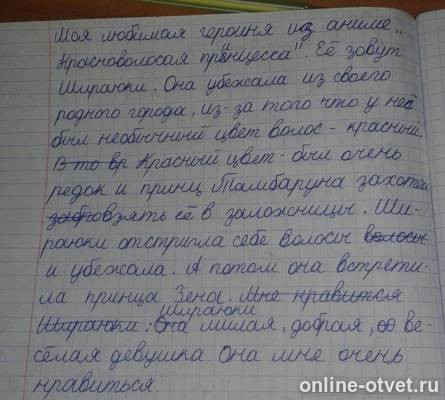 Моя любимая героиня из аниме „
Красноволосая принцесса". Её зовут
Шираюки. Она убежала из своего
родного города, из-за того что у неё
был необычный цвет волос - красный.
В то вр Красный цвет - был очень
редок и принц Тамбаруна захотел
забр взять её в заложницы. Ши-
раюки отстригла себе волосы волосы
и убежала. А потом она встрети-
ла принца Зена. Мне нравится
Шираюки. Она Шираюки милая, добрая, ве-
сёлая девушка Она мне очень
нравиться
online-otvet.ru